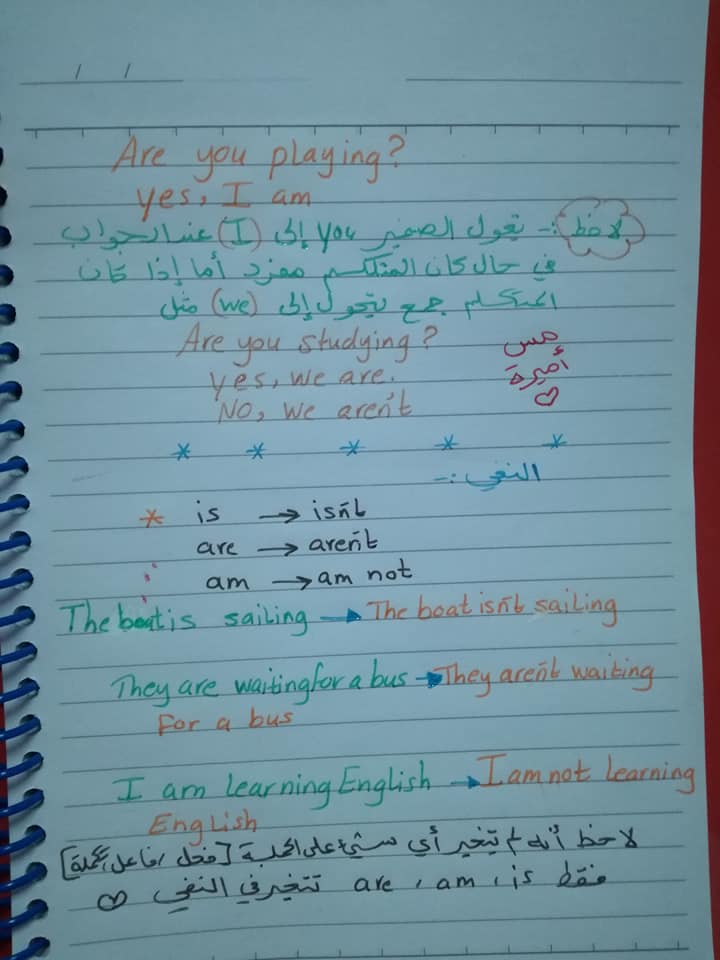 / /
Are you playing?
yes, I am
لاحظ :- تحول الضمير you إلى (I) عند الجواب
في حال كان المتكلم مفرد أما إذا كان
المتكلم جمع يتحول إلى (we) مثل
Are you studying?
yes, we are.
NO, we aren't
مس
أميرة
* * * * *
النفي :-
* is → isn't
are → aren't
am → am not
The boat is sailing → The boat isn't sailing
They are waiting for a bus → They aren't waiting
For a bus
I am learning English → I am not learning
English
لاحظ أنه لم يتغير أي شيء على الجملة [فعل، فاعل، تكملة]
فقط is ، am ، are تتغير في النفي ♡